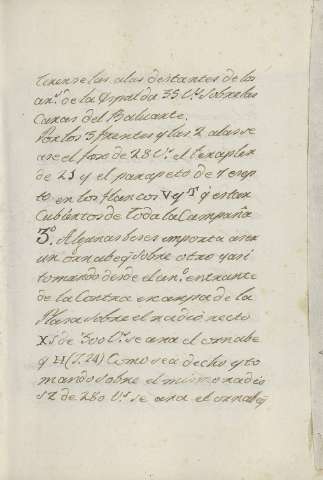 tirense las alas destantes de los
an.º de la Espalda 35 V.s sobre las
Caras del Baluarte.
Por los 3 frentes y las 2 alas se
ara el foso de 28 V.s el teraplen
de 21 y el parapeto de 7 esep
to en los flancos V y T q estan
Cubiertos de toda la Campaña
3º Algunas beses importa aser
un ornabeq sobre otro y asi
tomando desde el an.º entrante
de la Contra escarpa de la
Plasa sobre el radio recto
XS de 300 V.s se ara el ornabe
q H (f.24) Como sea dicho y to
mando sobre el mismo radio
SZ de 280 V.s se ara el ornabeq